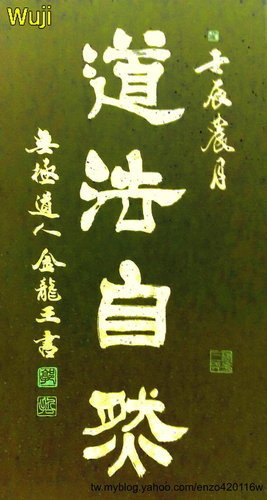 Wuji
壬辰農月
道法自然
無極道人金龍王書
tw.myblog.yahoo.com/enzo420116w